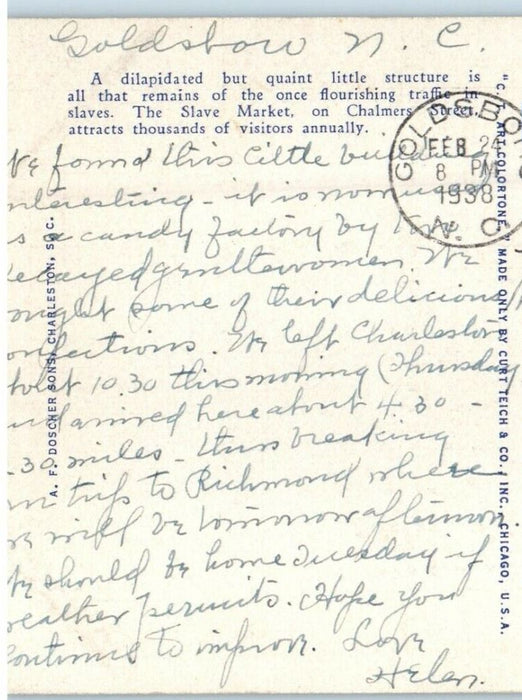 Goldsboro N. C.
A dilapidated but quaint little structure is
all that remains of the once flourishing traffic in
slaves. The Slave Market, on Chalmers Street,
attracts thousands of visitors annually.
GOLDSBORO
FEB 24
8 PM
1938
N. C.
We found this little building
nteresting - it is now used
s a candy factory by two
ecayed gentlewomen. We
ought some of their delicious
onfections. We left Charleston
bout 10.30 this morning (Thursday
nd arrived here about 4.30 -
30 miles - thus breaking
trip to Richmond where
e will be tomorrow afternoon
should be home Tuesday if
eather permits. Hope you
ontinue to improve. Love
Helen.
A. F. DOSCHER SONS, CHARLESTON, S. C.
"C. T. ART-COLORTONE," MADE ONLY BY CURT TEICH & CO., INC., CHICAGO, U.S.A.